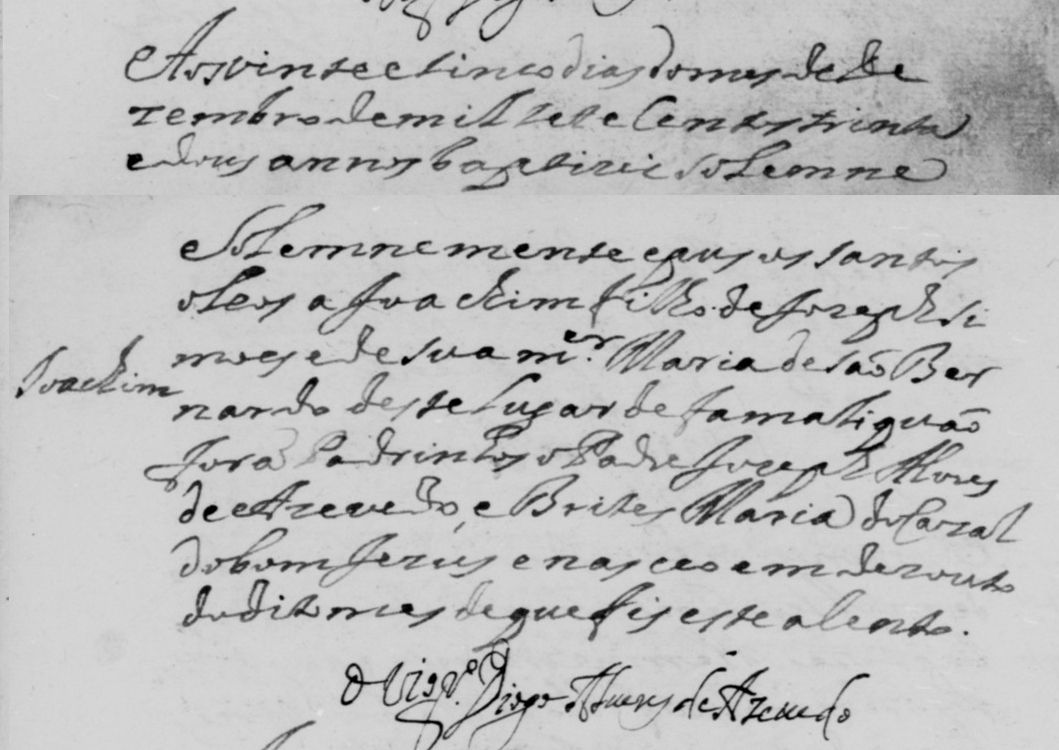 Aos vinte e sinco dias do mes de De
zembro de mil sete Centos trinta
e dous annos baptizei solemne
e Solemnemente e pus os santos
oleos a Joachim filho de Joseph Si
mões e de sua m.er Maria de são Ber
Joachim
nardo deste lugar de famaliquão
forã Padrinhos o Padre Joseph Alvres
de Azevedo, e Brites Maria do Cazal
do bom Jezus e nasceo em dezouto
do dito mes de que fis este acento.
O Vigr.o Diogo Alvres de Azevedo